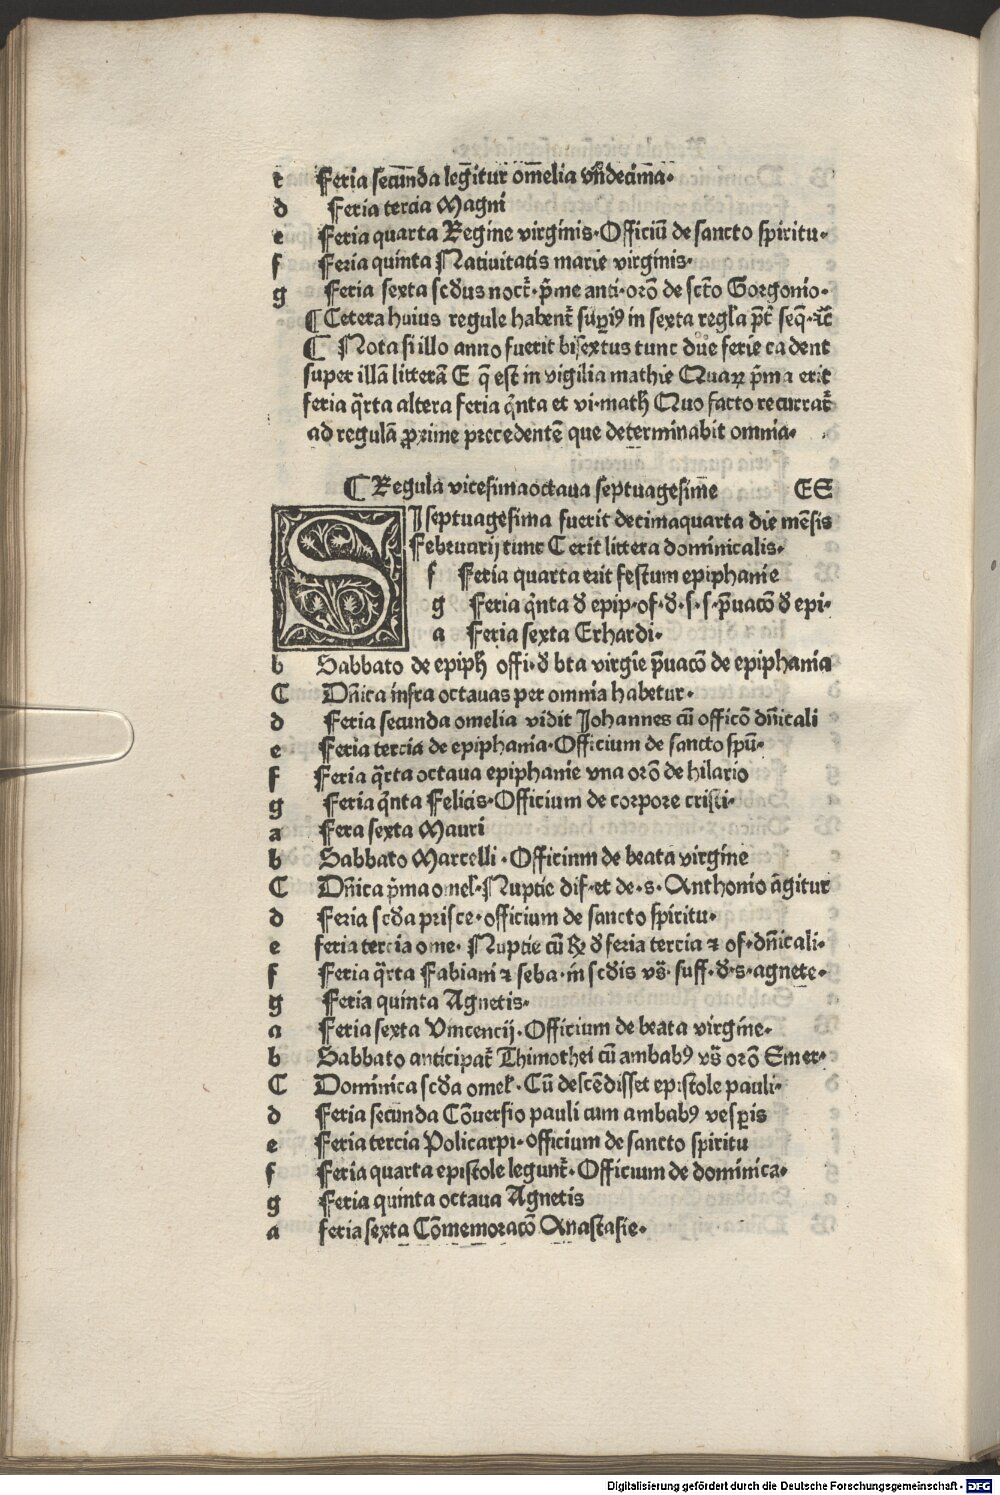 c Feria secūnda leg̃itur om̃elia vñdecim̃a.
d Feria tercia Magni
e Feria quarta Regine virginis. Officiū de sancto spiritu.
f Feria quinta Natiuitatis marie virginis.
g Feria sexta scd̃us noct̃. p̃me anti. orō de sct̃o Gorgonio.
¶ Cetera huius regule habent̃ suꝑiꝰ in sexta regl̃a p̃t̃ seq̃. ⁊c̃
¶ Nota si illo anno fuerit bisextus tunc due ferie cadent
super illā litterā E q̃ est in vigilia mathie Quaꝝ p̃ma erit
feria q̃rta altera feria q̃nta et vi. math̃ Quo facto recurrat̃
ad regulā ꝓxime precedentē que determinabit omnia.
¶ Regula vicesimaoctaua septuagesime ES
SI septuagesima fuerit decimaquarta die mēsis
Februarij tunc C erit littera dominicalis.
f Feria quarta erit festum epiphanie
g Feria q̃nta d̄ epip. of. d̄. s. s. p̃uacō d̄ epi.
a Feria sexta Erhardi.
b Sabbato de epiph̃ offi. d̄ bt̃a virgīe p̃uacō de epiphania
C Dñica infra octauas per omnia habetur.
d Feria secunda omelia vidit Johannes cū officō dñicali
e Feria tercia de epiphania. Officium de sancto spū.
f Feria q̃rta octaua epiphanie vna orō de hilario
g Feria q̃nta Felicis. Officium de corpore cristi.
a Fera sexta Mauri
b Sabbato Marcelli. Officinm de beata virgine
C Dñica p̃ma omel. Nuptie dif. et de. s. Anthonio āgitur
d Feria scd̃a prisce. officium de sancto spiritu.
e feria tercia ome. Nuptie cū ℟ d̄ feria tercia ⁊ of. dñicali.
f Feria q̃rta Fabiani ⁊ seba. in scd̃is vs̃. suff. d̄. s. agnete.
g Feria quinta Agnetis.
a Feria sexta Vincencij. Officium de beata virgine.
b Sabbato anticipat̃ Thimothei cū ambabꝰ vs̃ orō Emer.
C Dominica scd̃a omel̃. Cū descēdisset epistole pauli.
d Feria secunda Cōuersio pauli cum ambabꝰ vesꝑis
e Feria tercia Policarpi. officium de sancto spiritu
f Feria quarta epistole legunt̃. Officium de dominica.
g Feria quinta octaua Agnetis
a feria sexta Cōmemoracō Anastasie.
Digitalisierung gefördert durch die Deutsche Forschungsgemeinschaft - DFG